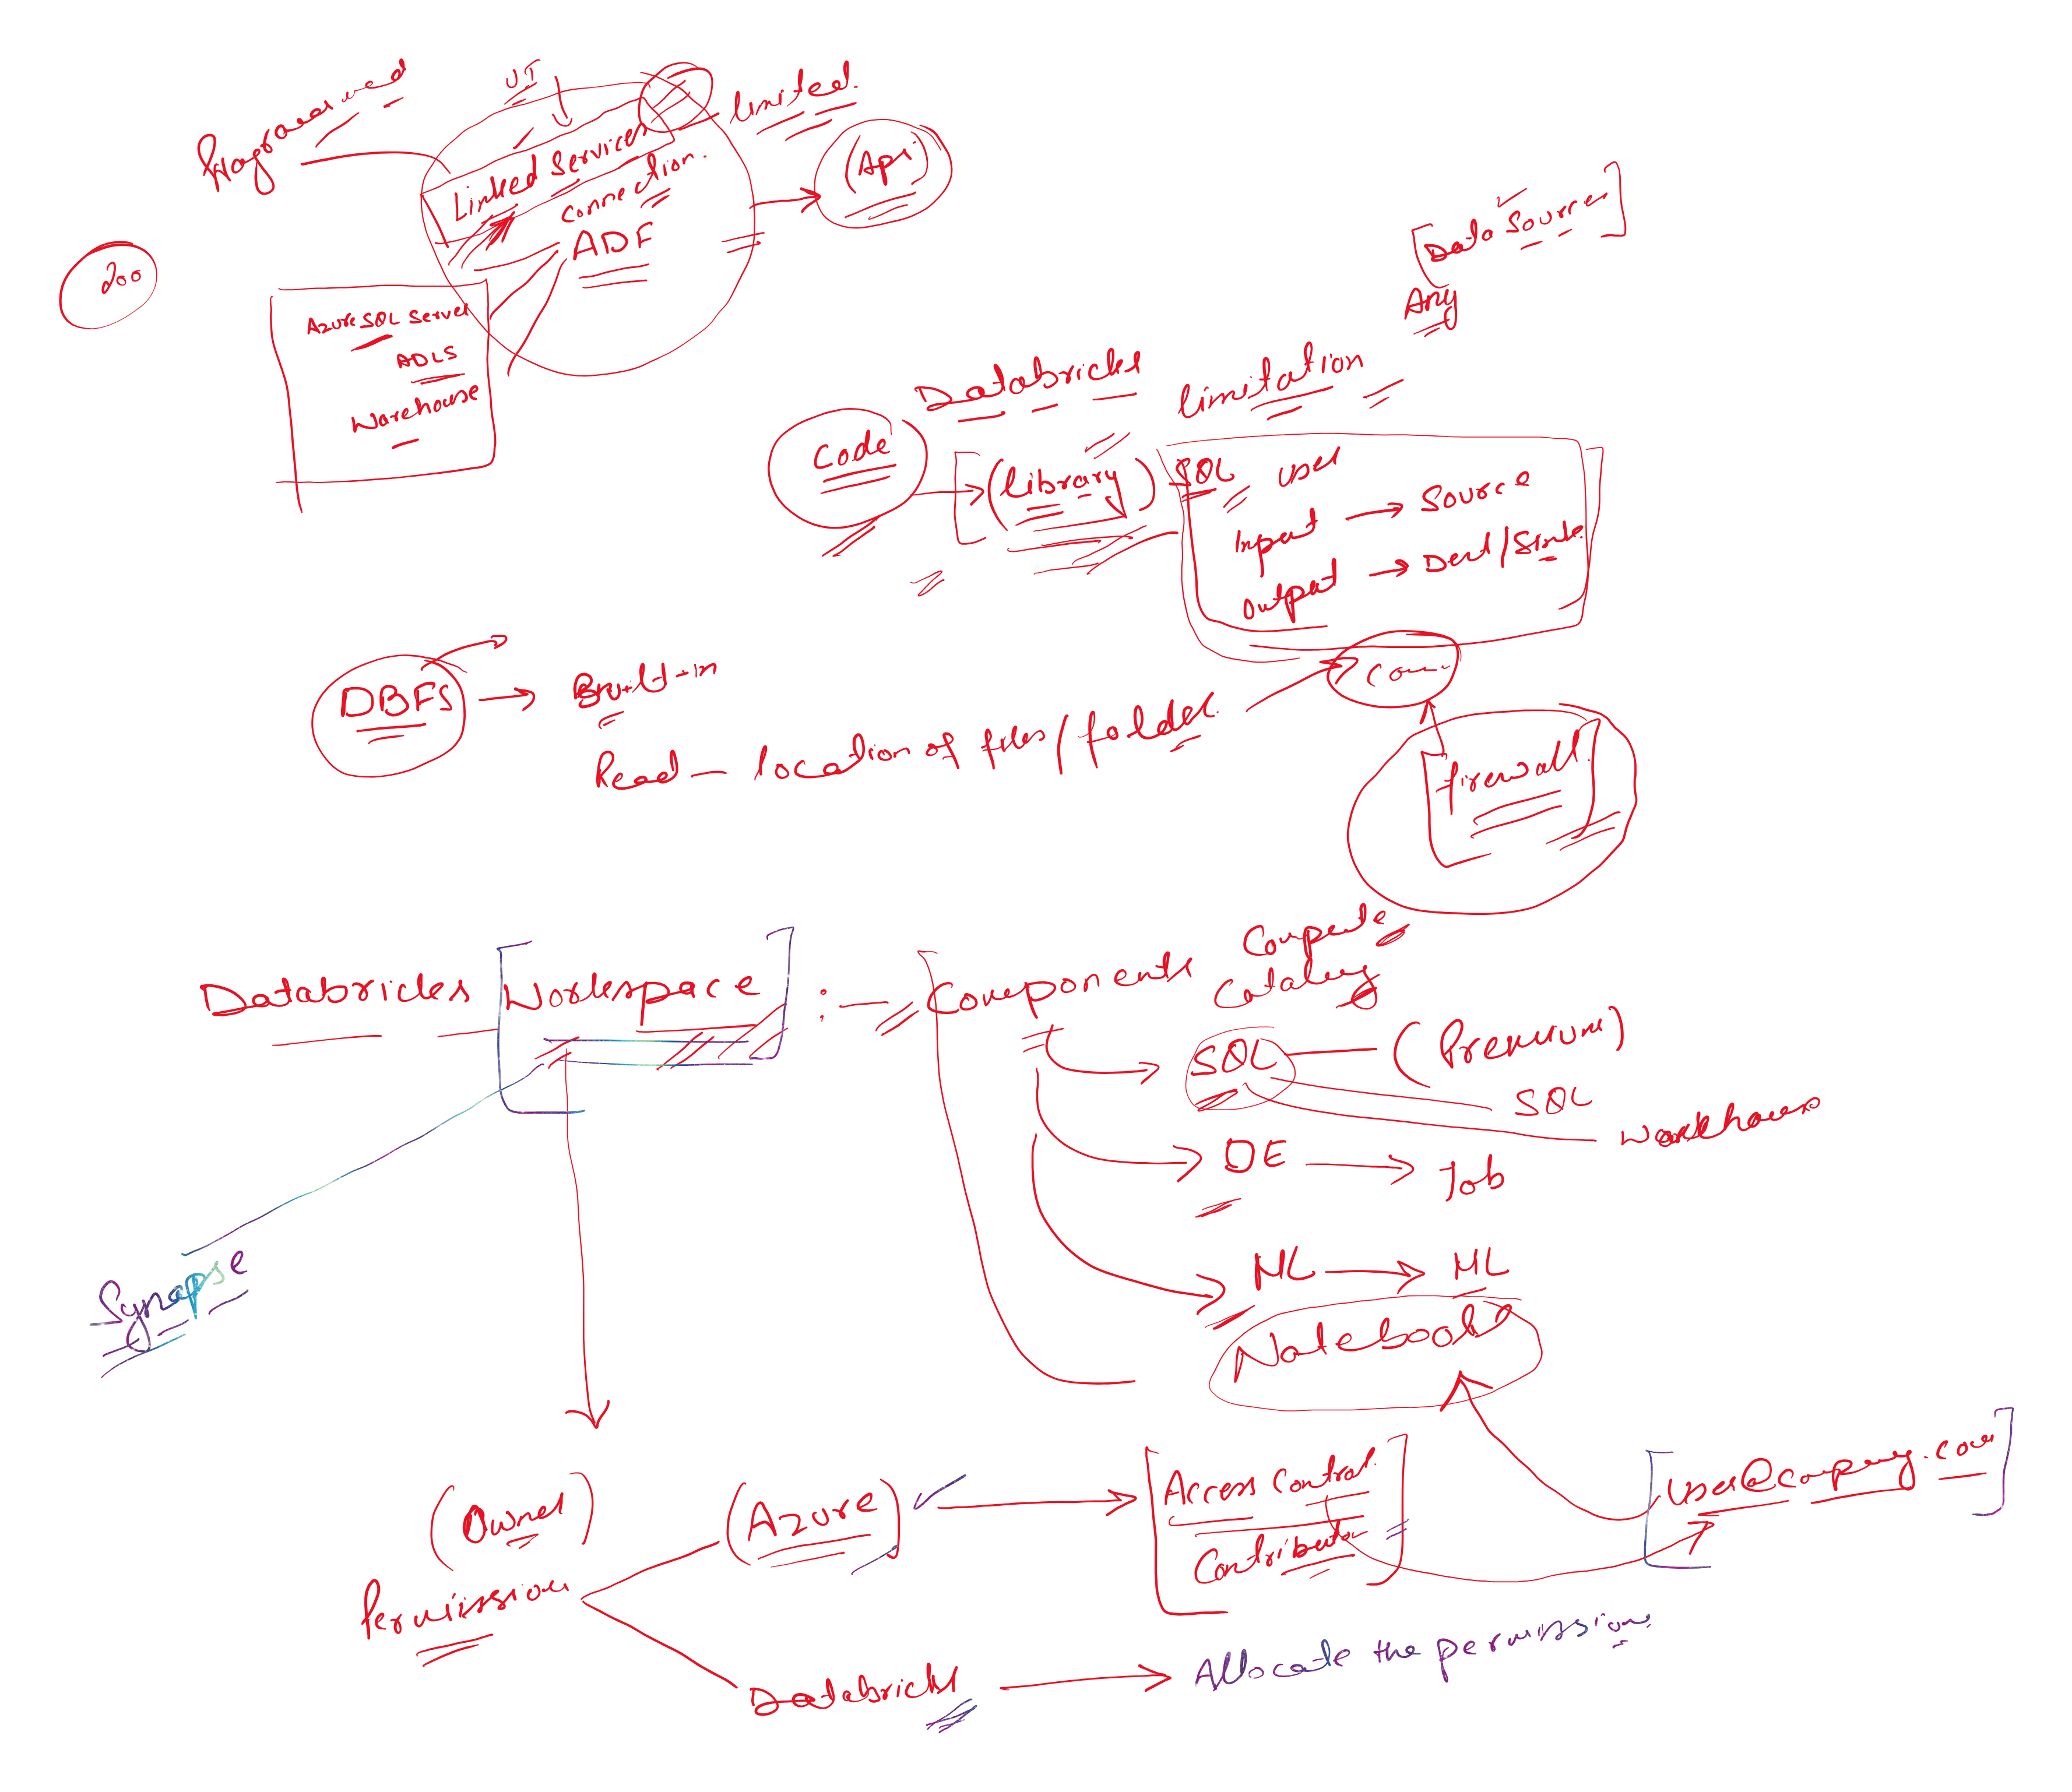 UI
limited.
Linked Services
Connection.
ADF
(Api)
200
Azure SQL Server
ADLS
Warehouse
[Data Sources]
Any
Databricks
limitation
Code
(library)
SQL user
Input → Source
Output → Dest/Sink.
DBFS → Built-in
Read — location of files/folder.
Con
firewall.
Databricks [Workspace] :- Components
Compute
Catalog
SQL — (Premium)
SQL
DE → Job
ML → ML
Notebook
Synapse
(Owner)
Permission
(Azure) →
[Access Control.
Contributor]
[user@company.com]
Databricks → Allocate the permission.